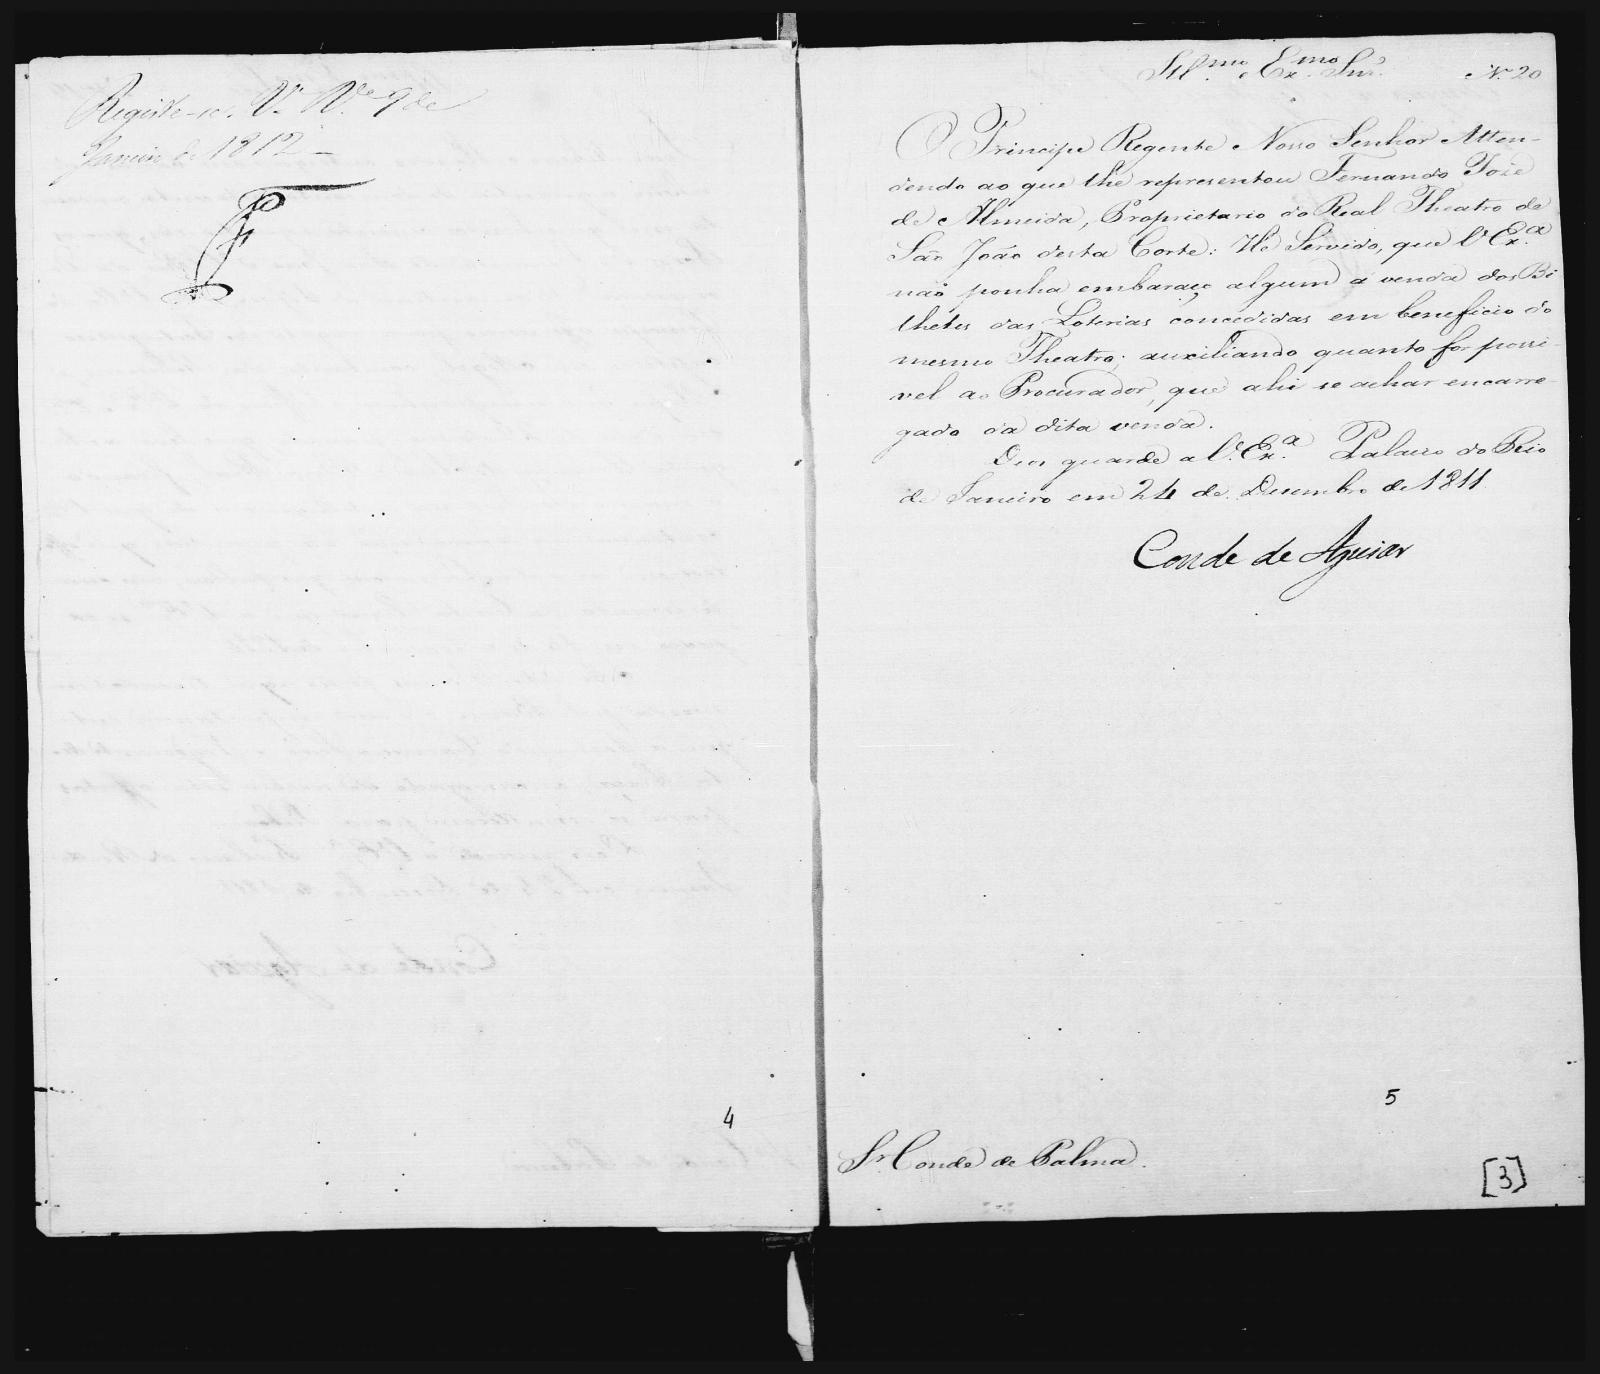 Registe-se. Va. Ra. 9 de
Janeiro de 1812
4
Illmo. e Exmo. Snr.
No. 20
O Principe Regente Nosso Senhor Atten-
dendo ao que lhe representou Fernando Joze
de Almeida, Proprietario do Real Theatro de
São João desta Corte: He Servido, que V. Exa.
não ponha embaraço algum á venda dos Bi-
lhetes das Loterias concedidas em beneficio do
mesmo Theatro; auxiliando quanto for possi-
vel ao Procurador, que ahi se achar encarre-
gado da dita venda.
Deos guarde a V. Exa. Palacio do Rio
de Janeiro em 24 de Dezembro de 1811
Conde de Aguiar
5
Sr. Conde de Palma.
[3]